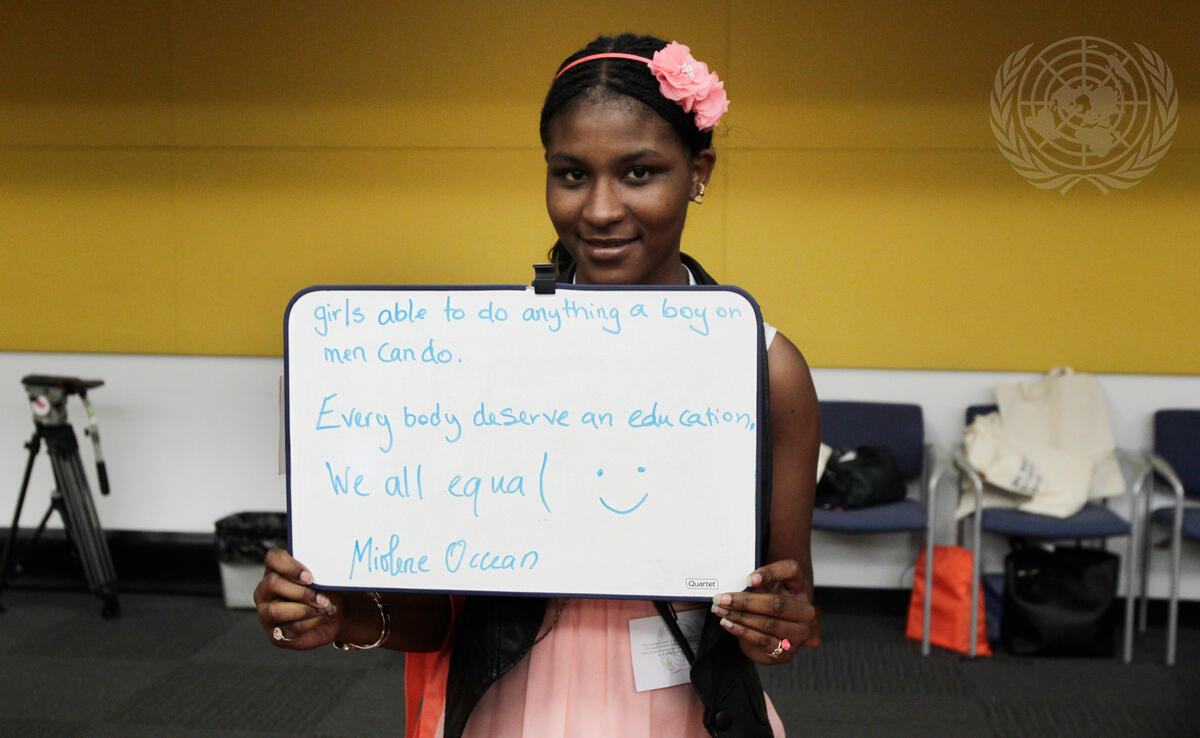 girls able to do anything a boy on
men can do.
Every body deserve an education,
We all equal :)
Miolene Occean
Quartet